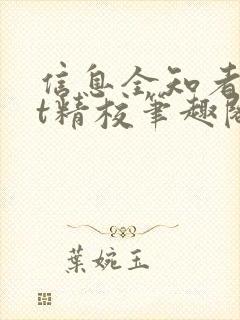 信息全知者
t精校笔趣阁
葉婉玉